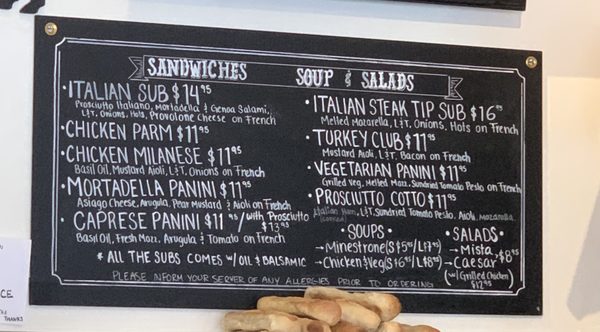 SANDWICHES
ITALIAN SUB $14.95
Prosciutto Italiano, Mortadella & Genoa Salami,
L&T, Onions, Hots, Provolone Cheese on French
CHICKEN PARM $11.95
CHICKEN MILANESE $11.95
Basil Oil, Mustard Aioli, L&T, Onions on French
MORTADELLA PANINI $11.95
Asiago Cheese, Arugula, Pear Mustard & Aioli on French
CAPRESE PANINI $11.95/with Prosciutto
$13.95
Basil Oil, Fresh Mozz, Arugula & Tomato on French
* ALL THE SUBS COME W/ OIL & BALSAMIC
SOUP & SALADS
ITALIAN STEAK TIP SUB $16.95
Melted Mozarella, L&T, Onions, Hots on French
TURKEY CLUB $11.95
Mustard Aioli, L&T, Bacon on French
VEGETARIAN PANINI $11.95
Grilled Veg, Melted Mozz, Sundried Tomato Pesto on French
PROSCIUTTO COTTO $11.95
Italian Ham, L&T, Sundried Tomato Pesto, Aioli, Mozarella
(cooked)
SOUPS
→Minestrone(S $5.95/L $7.95)
→Chicken & Veg(S $6.95/L $8.95)
SALADS
→Mista
→Caesar $8.95
(w/ Grilled Chicken)
$12.95
PLEASE INFORM YOUR SERVER OF ANY ALLERGIES PRIOR TO ORDERING
CE
THANKS